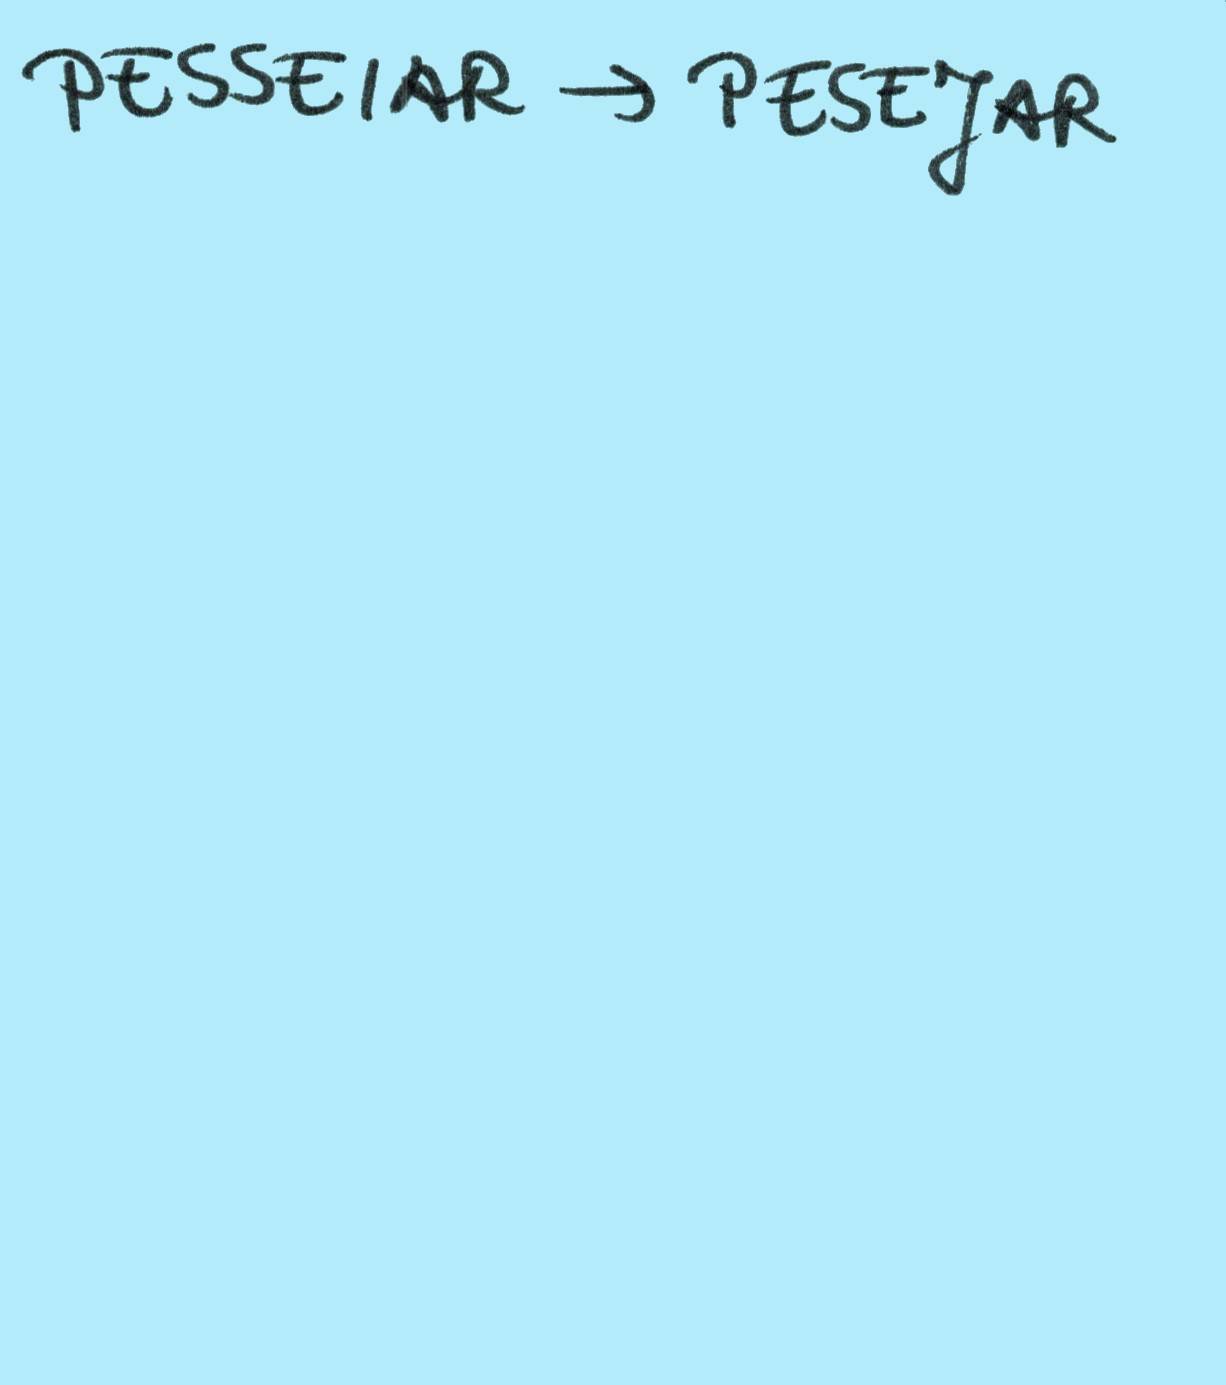 PESSEIAR → PESEJAR